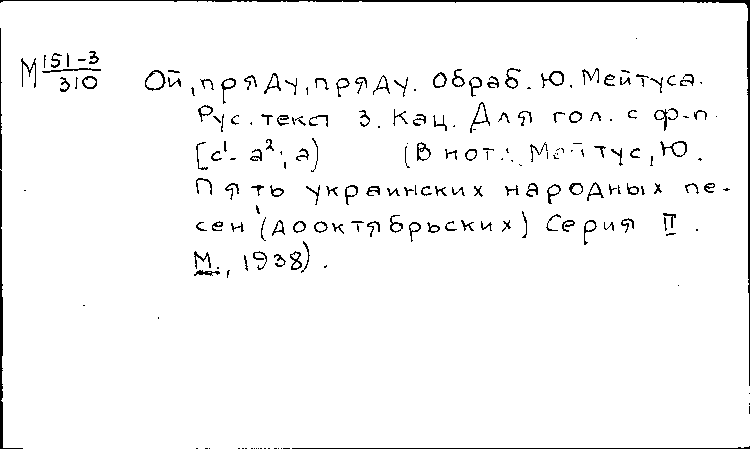 М 151-3/310 Ой, пряду, пряду. Обраб. Ю. Мейтуса.
Рус. текст З. Кац. Для гол. с ф-п.
[c¹- a²; a) (В нот.: Мейтус, Ю.
Пять украинских народных пе-
сен (дооктябрьских) Серия II.
М., 1938).